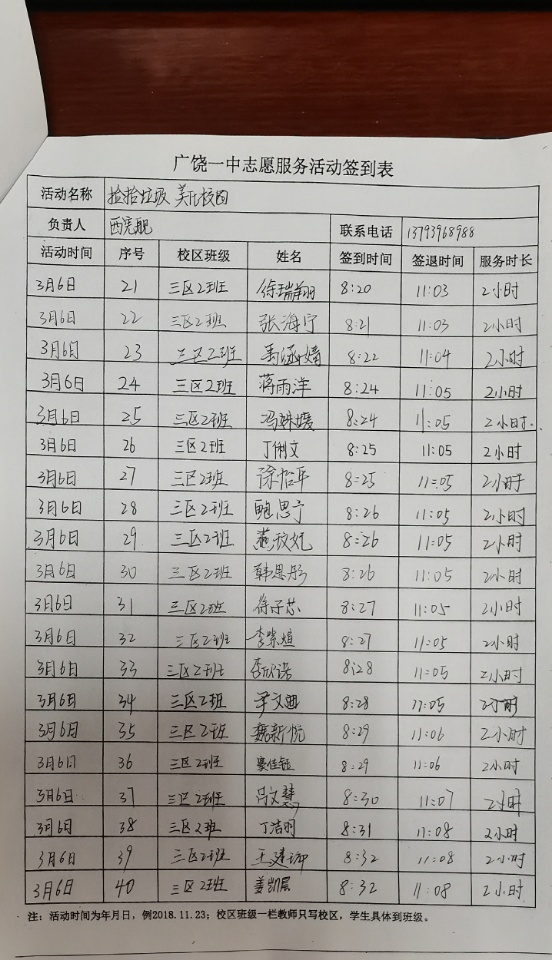 广饶一中志愿服务活动签到表
活动名称 捡拾垃圾 美化校园
负责人 西宪肥 联系电话 13793968988
活动时间 序号 校区班级 姓名 签到时间 签退时间 服务时长
3月6日 21 三区2班 徐瑞翔 8:20 11:03 2小时
3月6日 22 三区2班 张海宁 8:21 11:03 2小时
3月6日 23 三区2班 8:22 11:04 2小时
3月6日 24 三区2班 蒋雨洋 8:24 11:05 2小时
3月6日 25 三区2班 冯姝媛 8:24 11:05 2小时
3月6日 26 三区2班 丁俐文 8:25 11:05 2小时
3月6日 27 三区2班 徐怡平 8:25 11:05 2小时
3月6日 28 三区2班 鲍思宁 8:26 11:05 2小时
3月6日 29 三区2班 8:26 11:05 2小时
3月6日 30 三区2班 韩思彤 8:26 11:05 2小时
3月6日 31 三区2班 徐子芯 8:27 11:05 2小时
3月6日 32 三区2班 8:27 11:05 2小时
3月6日 33 三区2班 8:28 11:05 2小时
3月6日 34 三区2班 8:28 11:05 2小时
3月6日 35 三区2班 魏新悦 8:29 11:06 2小时
3月6日 36 三区2班 8:29 11:06 2小时
3月6日 37 三区2班 吕文慧 8:30 11:07 2小时
3月6日 38 三区2班 丁洁明 8:31 11:08 2小时
3月6日 39 三区2班 8:32 11:08 2小时
3月6日 40 三区2班 姜凯宸 8:32 11:08 2小时
注：活动时间为年月日，例2018.11.23；校区班级一栏教师只写校区，学生具体到班级。